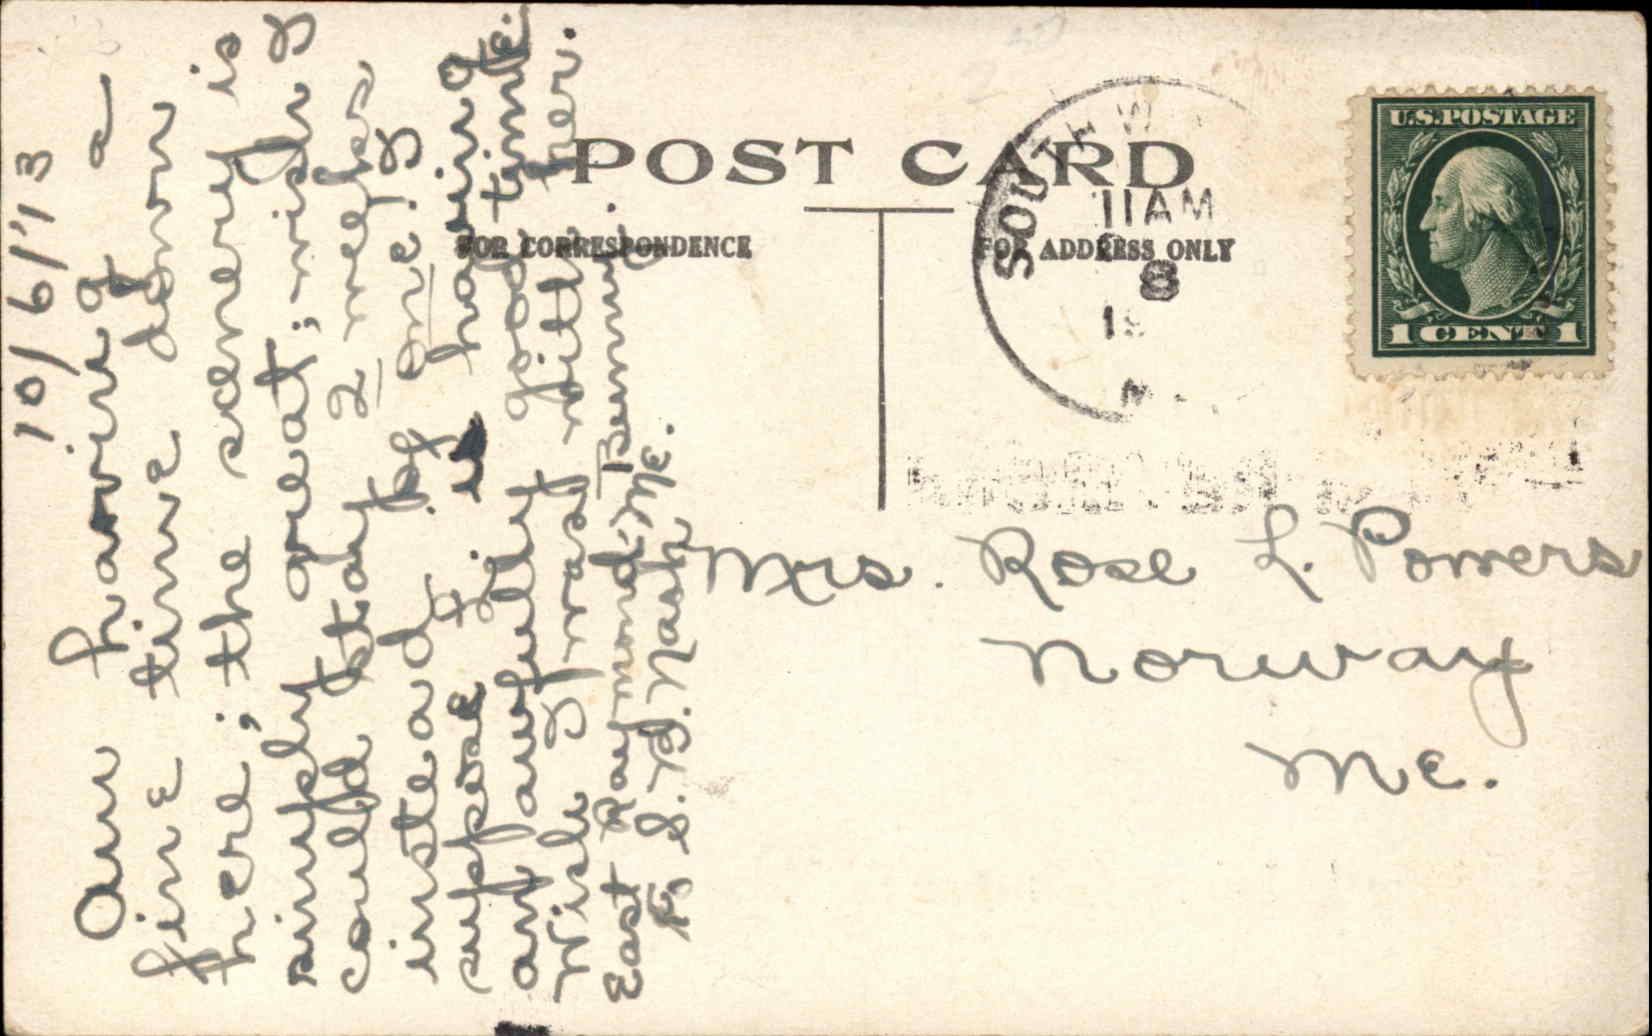 10/6/'13
Am having a
fine time down
here; the scenery is
simply great; wish I
could stay 2 weeks
instead of one! I
suppose is having
an awfully good time.
Wish I was with her.
Bunny.
East Raymond, Me.
% S. B. Nash
POST CARD
FOR CORRESPONDENCE
FOR ADDRESS ONLY
SOUTH W
11 AM
8
19
M
U.S. POSTAGE
1 CENT 1
Mrs. Rose L. Powers
Norway
Me.